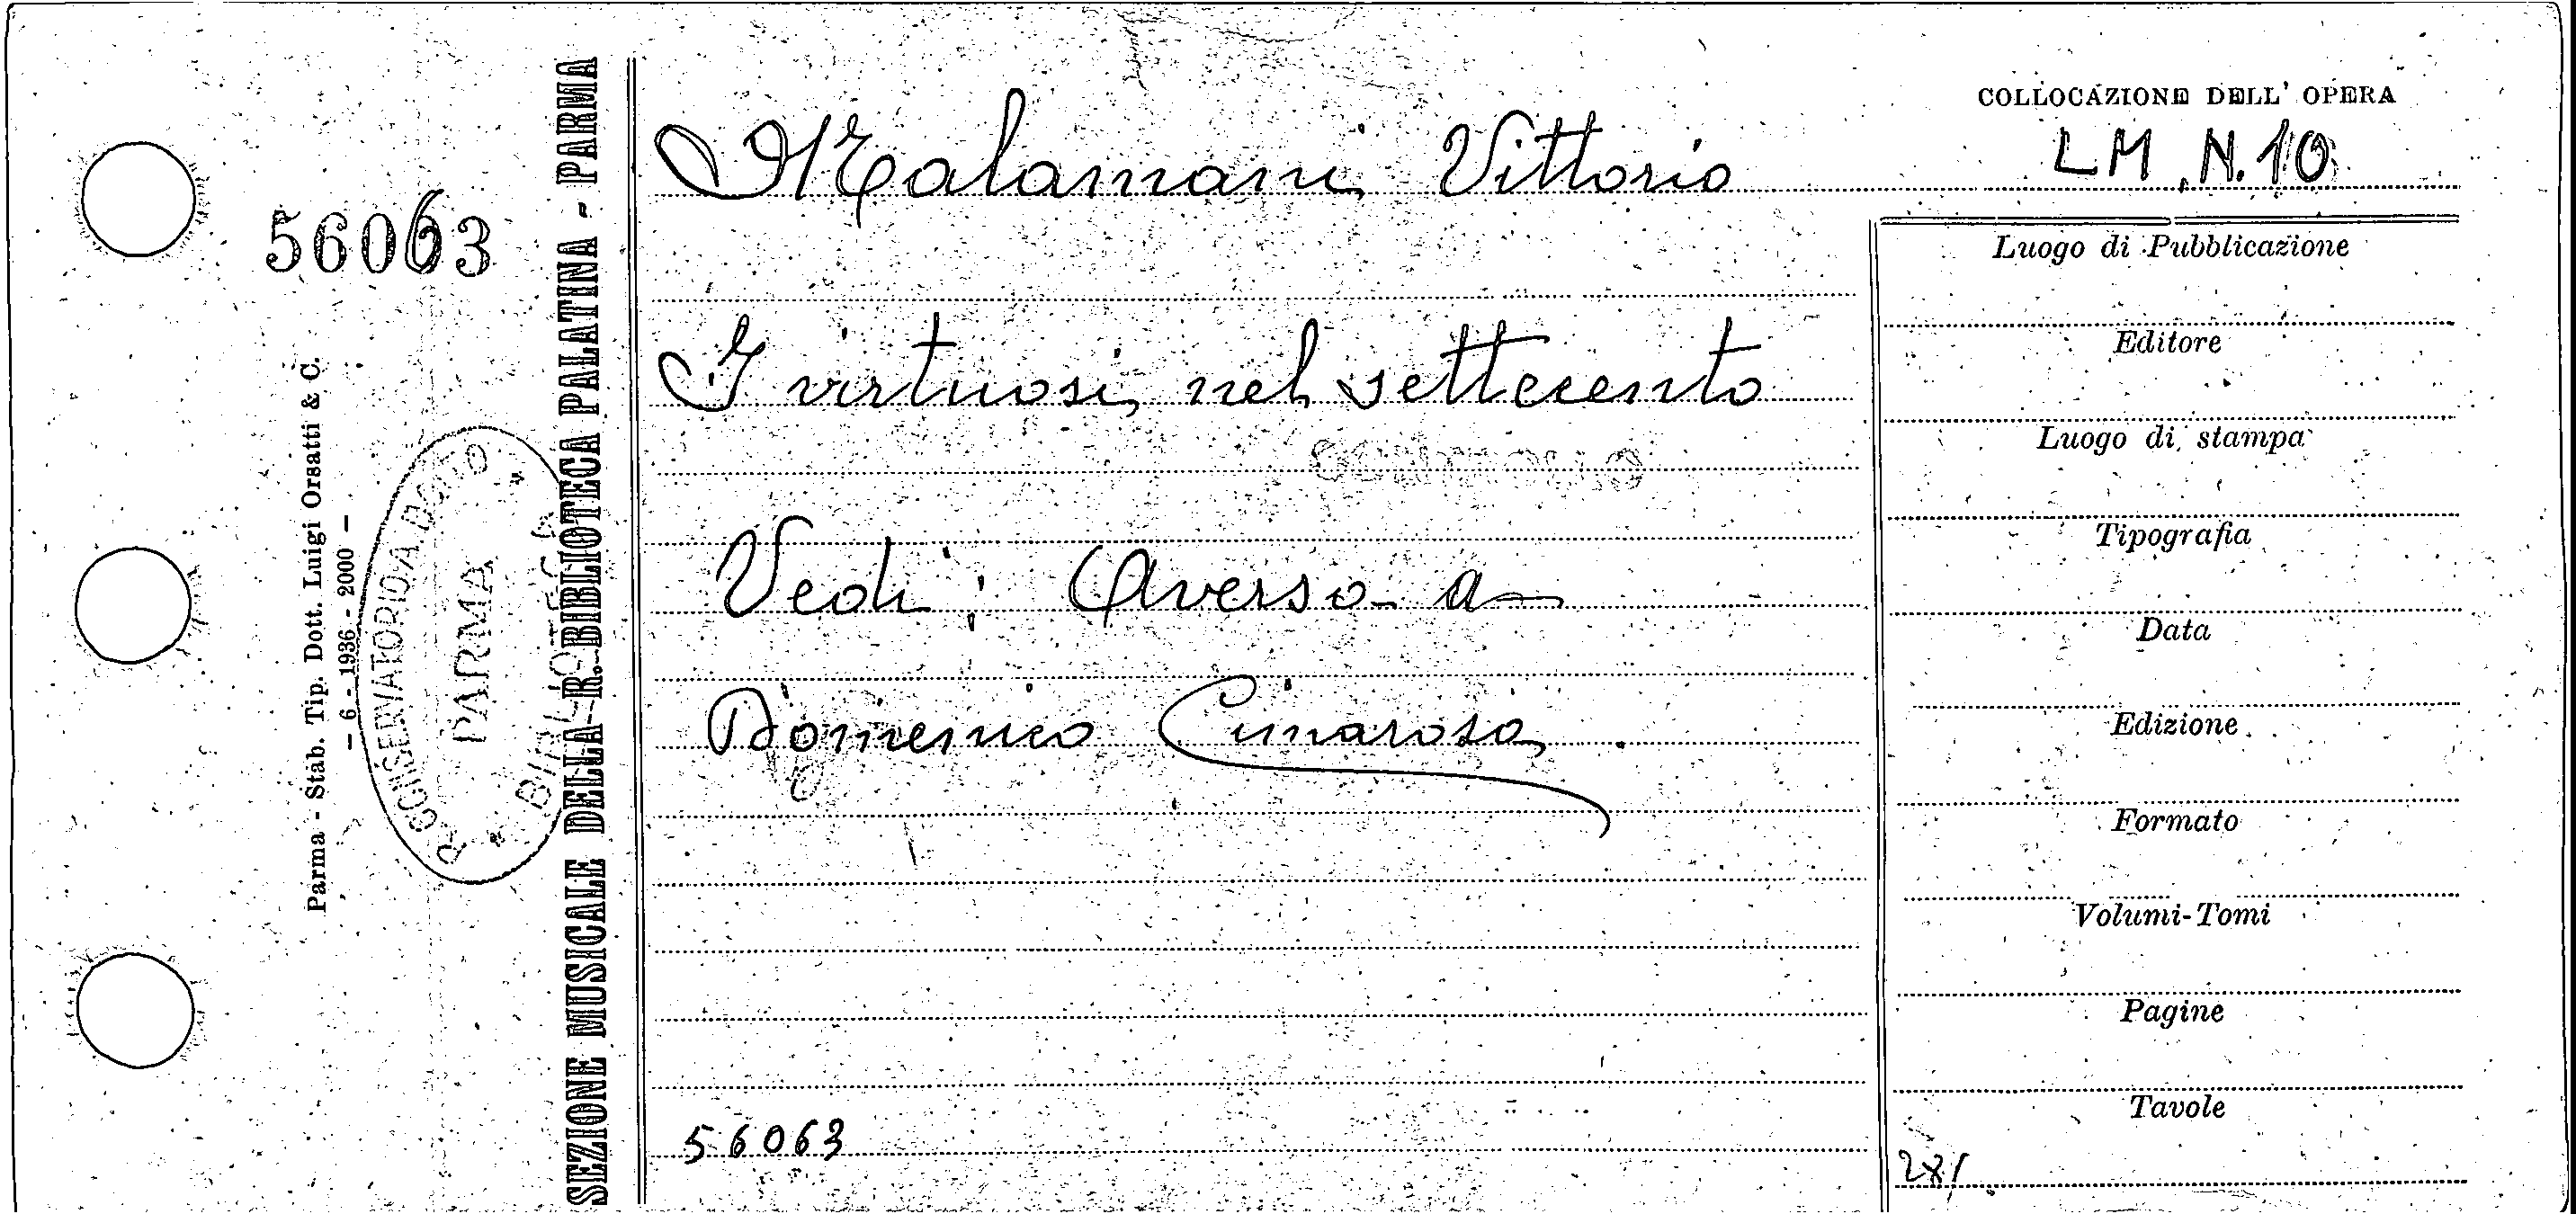 COLLOCAZIONE DELL' OPERA
Malamani Vittorio
LM N.10
56063
I virtuosi nel settecento
Vedi: Averso a
Domenico Cimarosa
56063
Luogo di Pubblicazione
Editore
Luogo di stampa
Tipografia
Data
Edizione
Formato
Volumi-Tomi
Pagine
Tavole
281
SEZIONE MUSICALE DELLA R. BIBLIOTECA PALATINA - PARMA
Parma - Stab. Tip. Dott. Luigi Orsatti & C.
- 6 - 1936 - 2000 -
R. CONSERVATORIO A. BOITO
PARMA
BIBLIOTECA